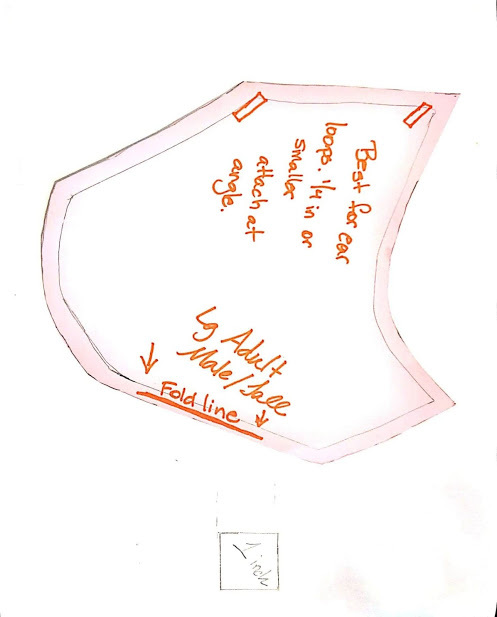 Best for ear
loops. 1/4 in or
smaller
attach at
angle.
Lg Adult
Male/
Fold line
1 inch